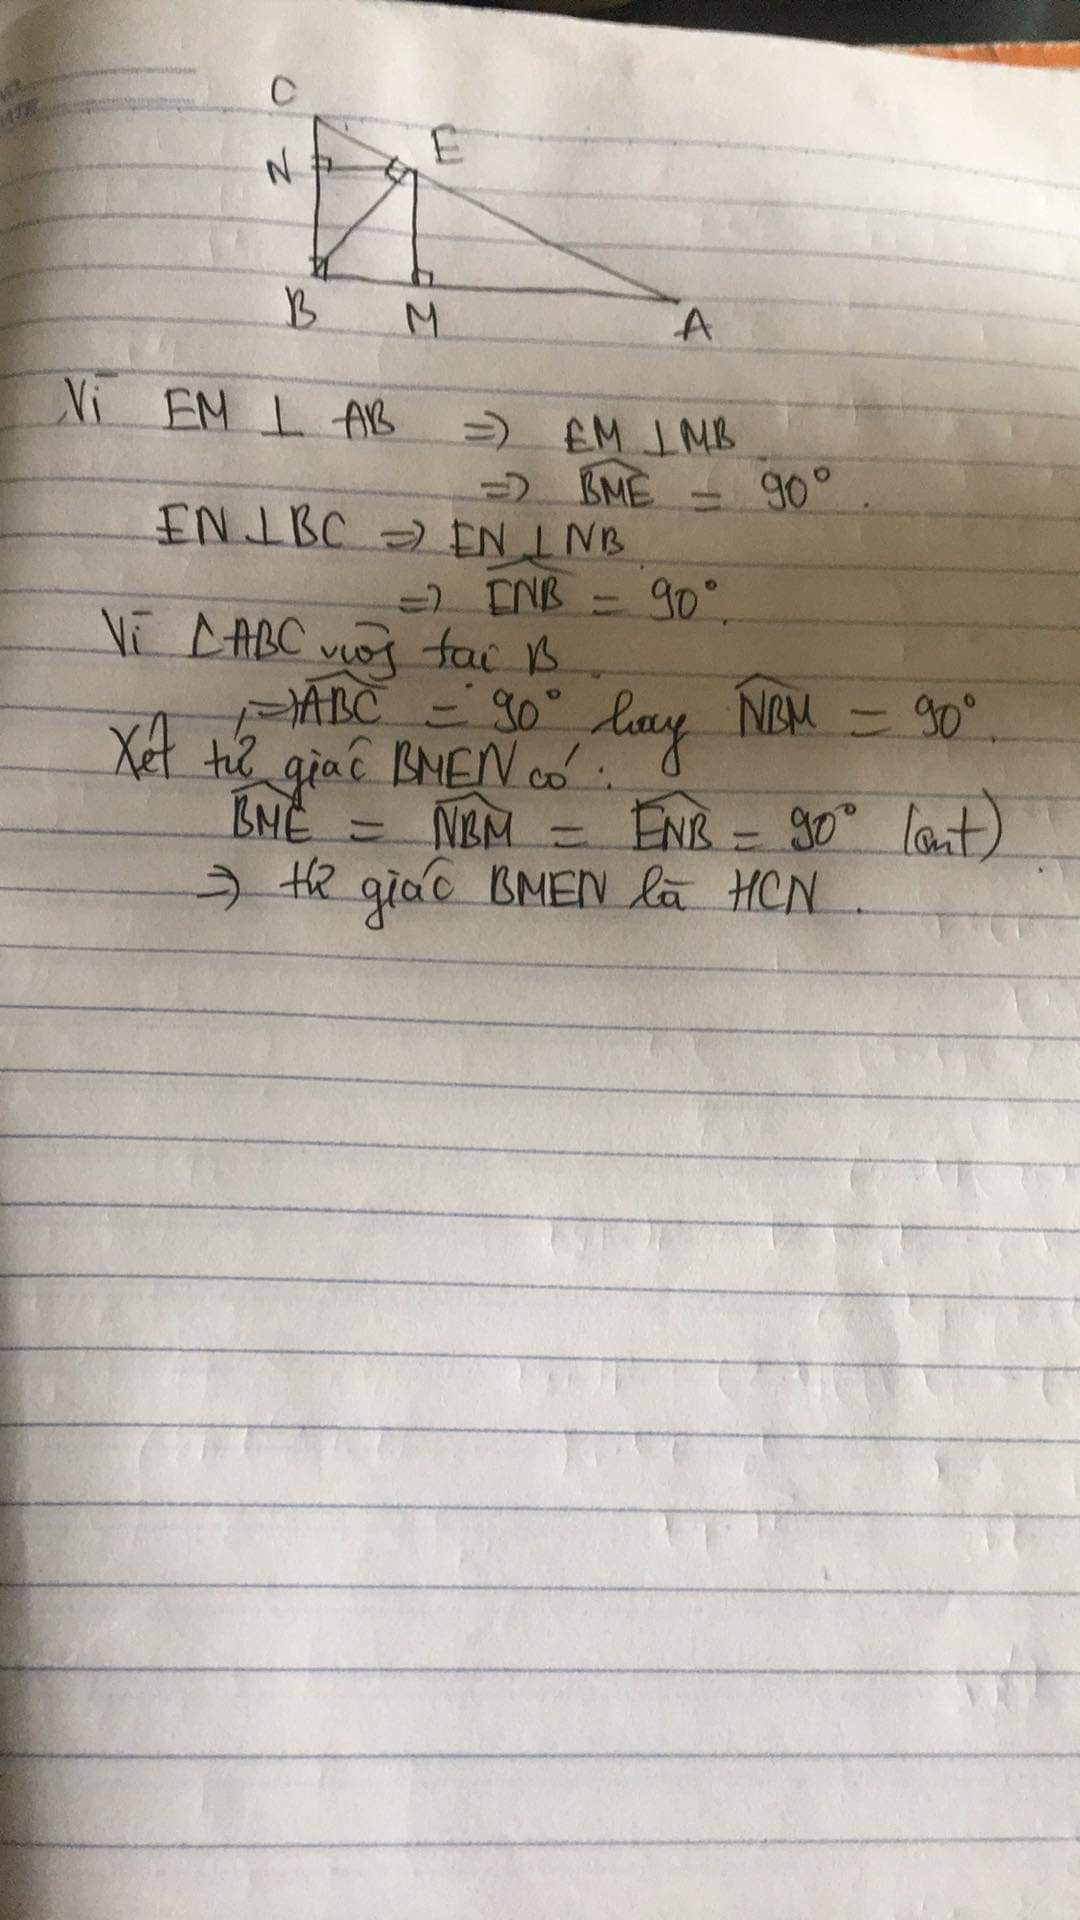 C
E
N
B
M
A
Vì EM ⊥ AB => EM ⊥ MB
=> BME = 90°.
EN ⊥ BC => EN ⊥ NB
=> ENB = 90°.
Vì △ABC tại B
=> ABC = 90° hay NBM = 90°.
Xét tứ giác BMEN có:
BME = NBM = ENB = 90° (cmt)
=> tứ giác BMEN là HCN.